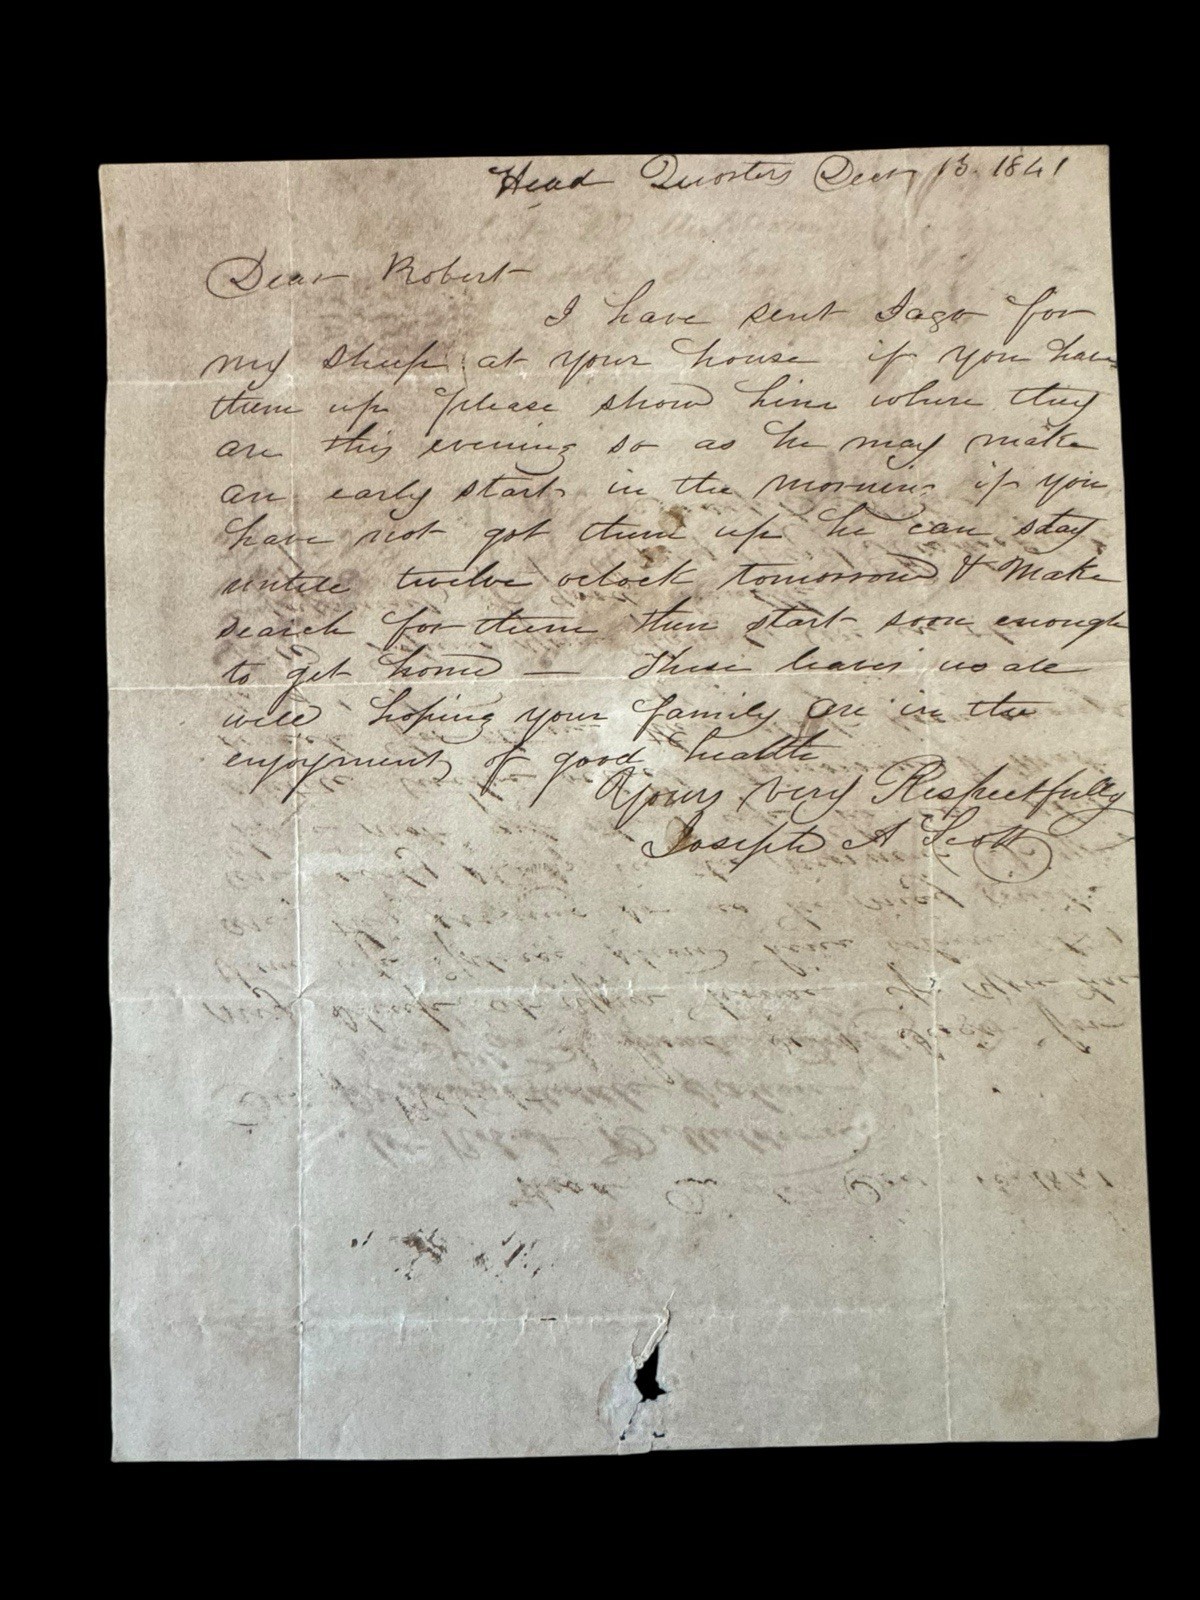 Head Quarters Decr 13. 1841
Dear Robert
I have sent Iago for
my sheep at your house if you have
them up please show him where they
are this evening so as he may make
an early start in the morning if you
have not got them up he can stay
untill twelve oclock tomorrow & make
search for them then start soon enough
to get home — These leaves us all
well hoping your family are in the
enjoyment of good health
Yours very Respectfully
Joseph A Scott